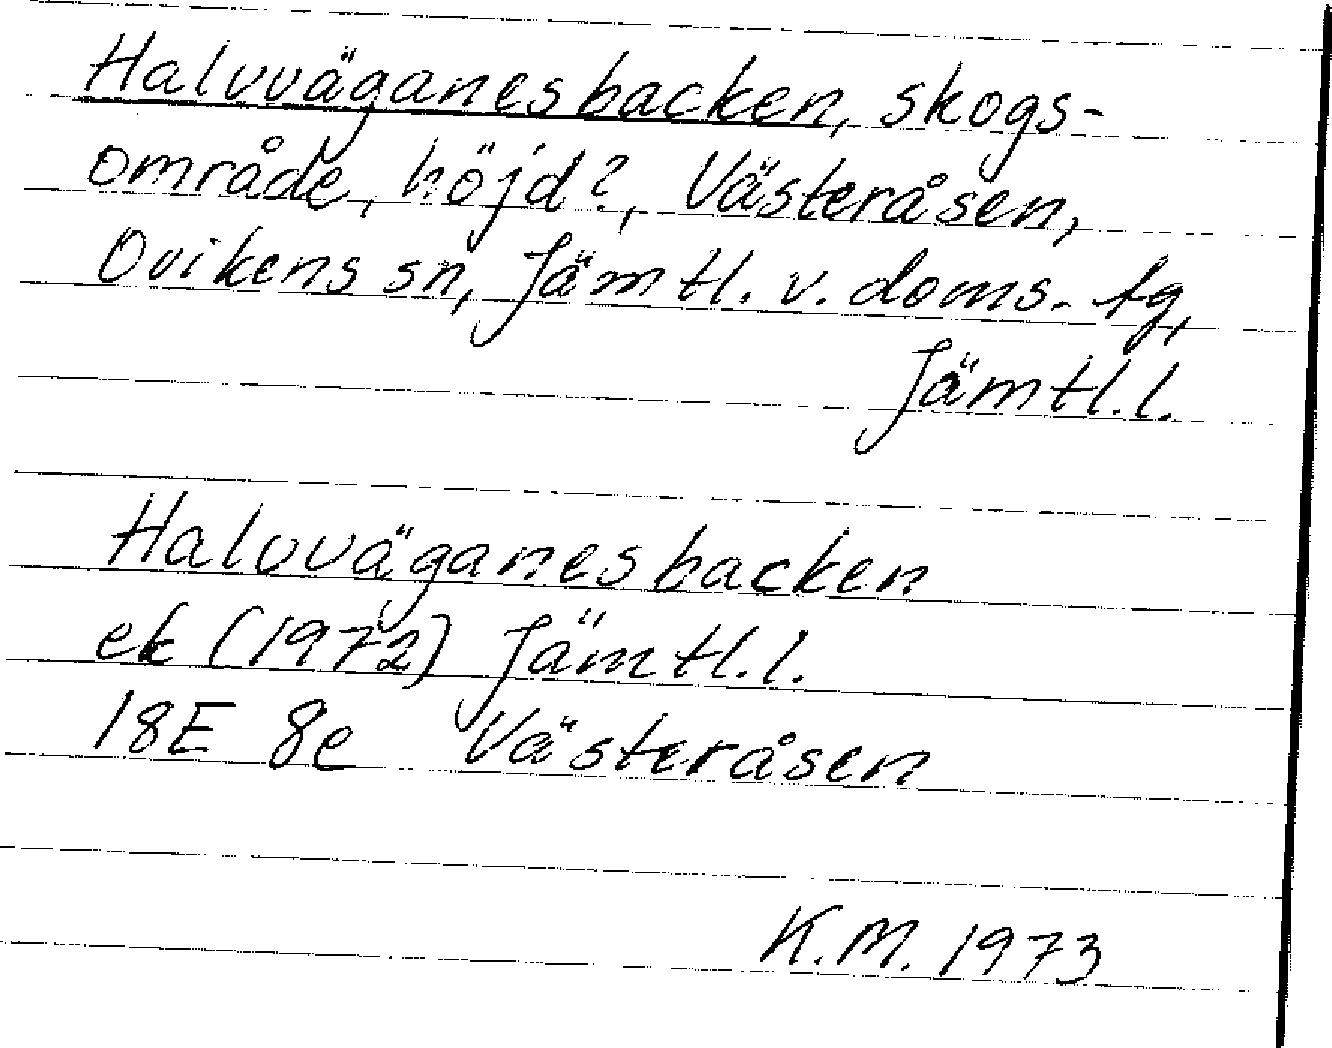 Halvväganesbacken, skogs-
område, höjd?, Västeråsen,
Ovikens sn, Jämtl. v. doms. tg,
Jämtl.l.
Halvväganesbacken
ek (1972) Jämtl.l.
18E 8e Västeråsen
K.M. 1973